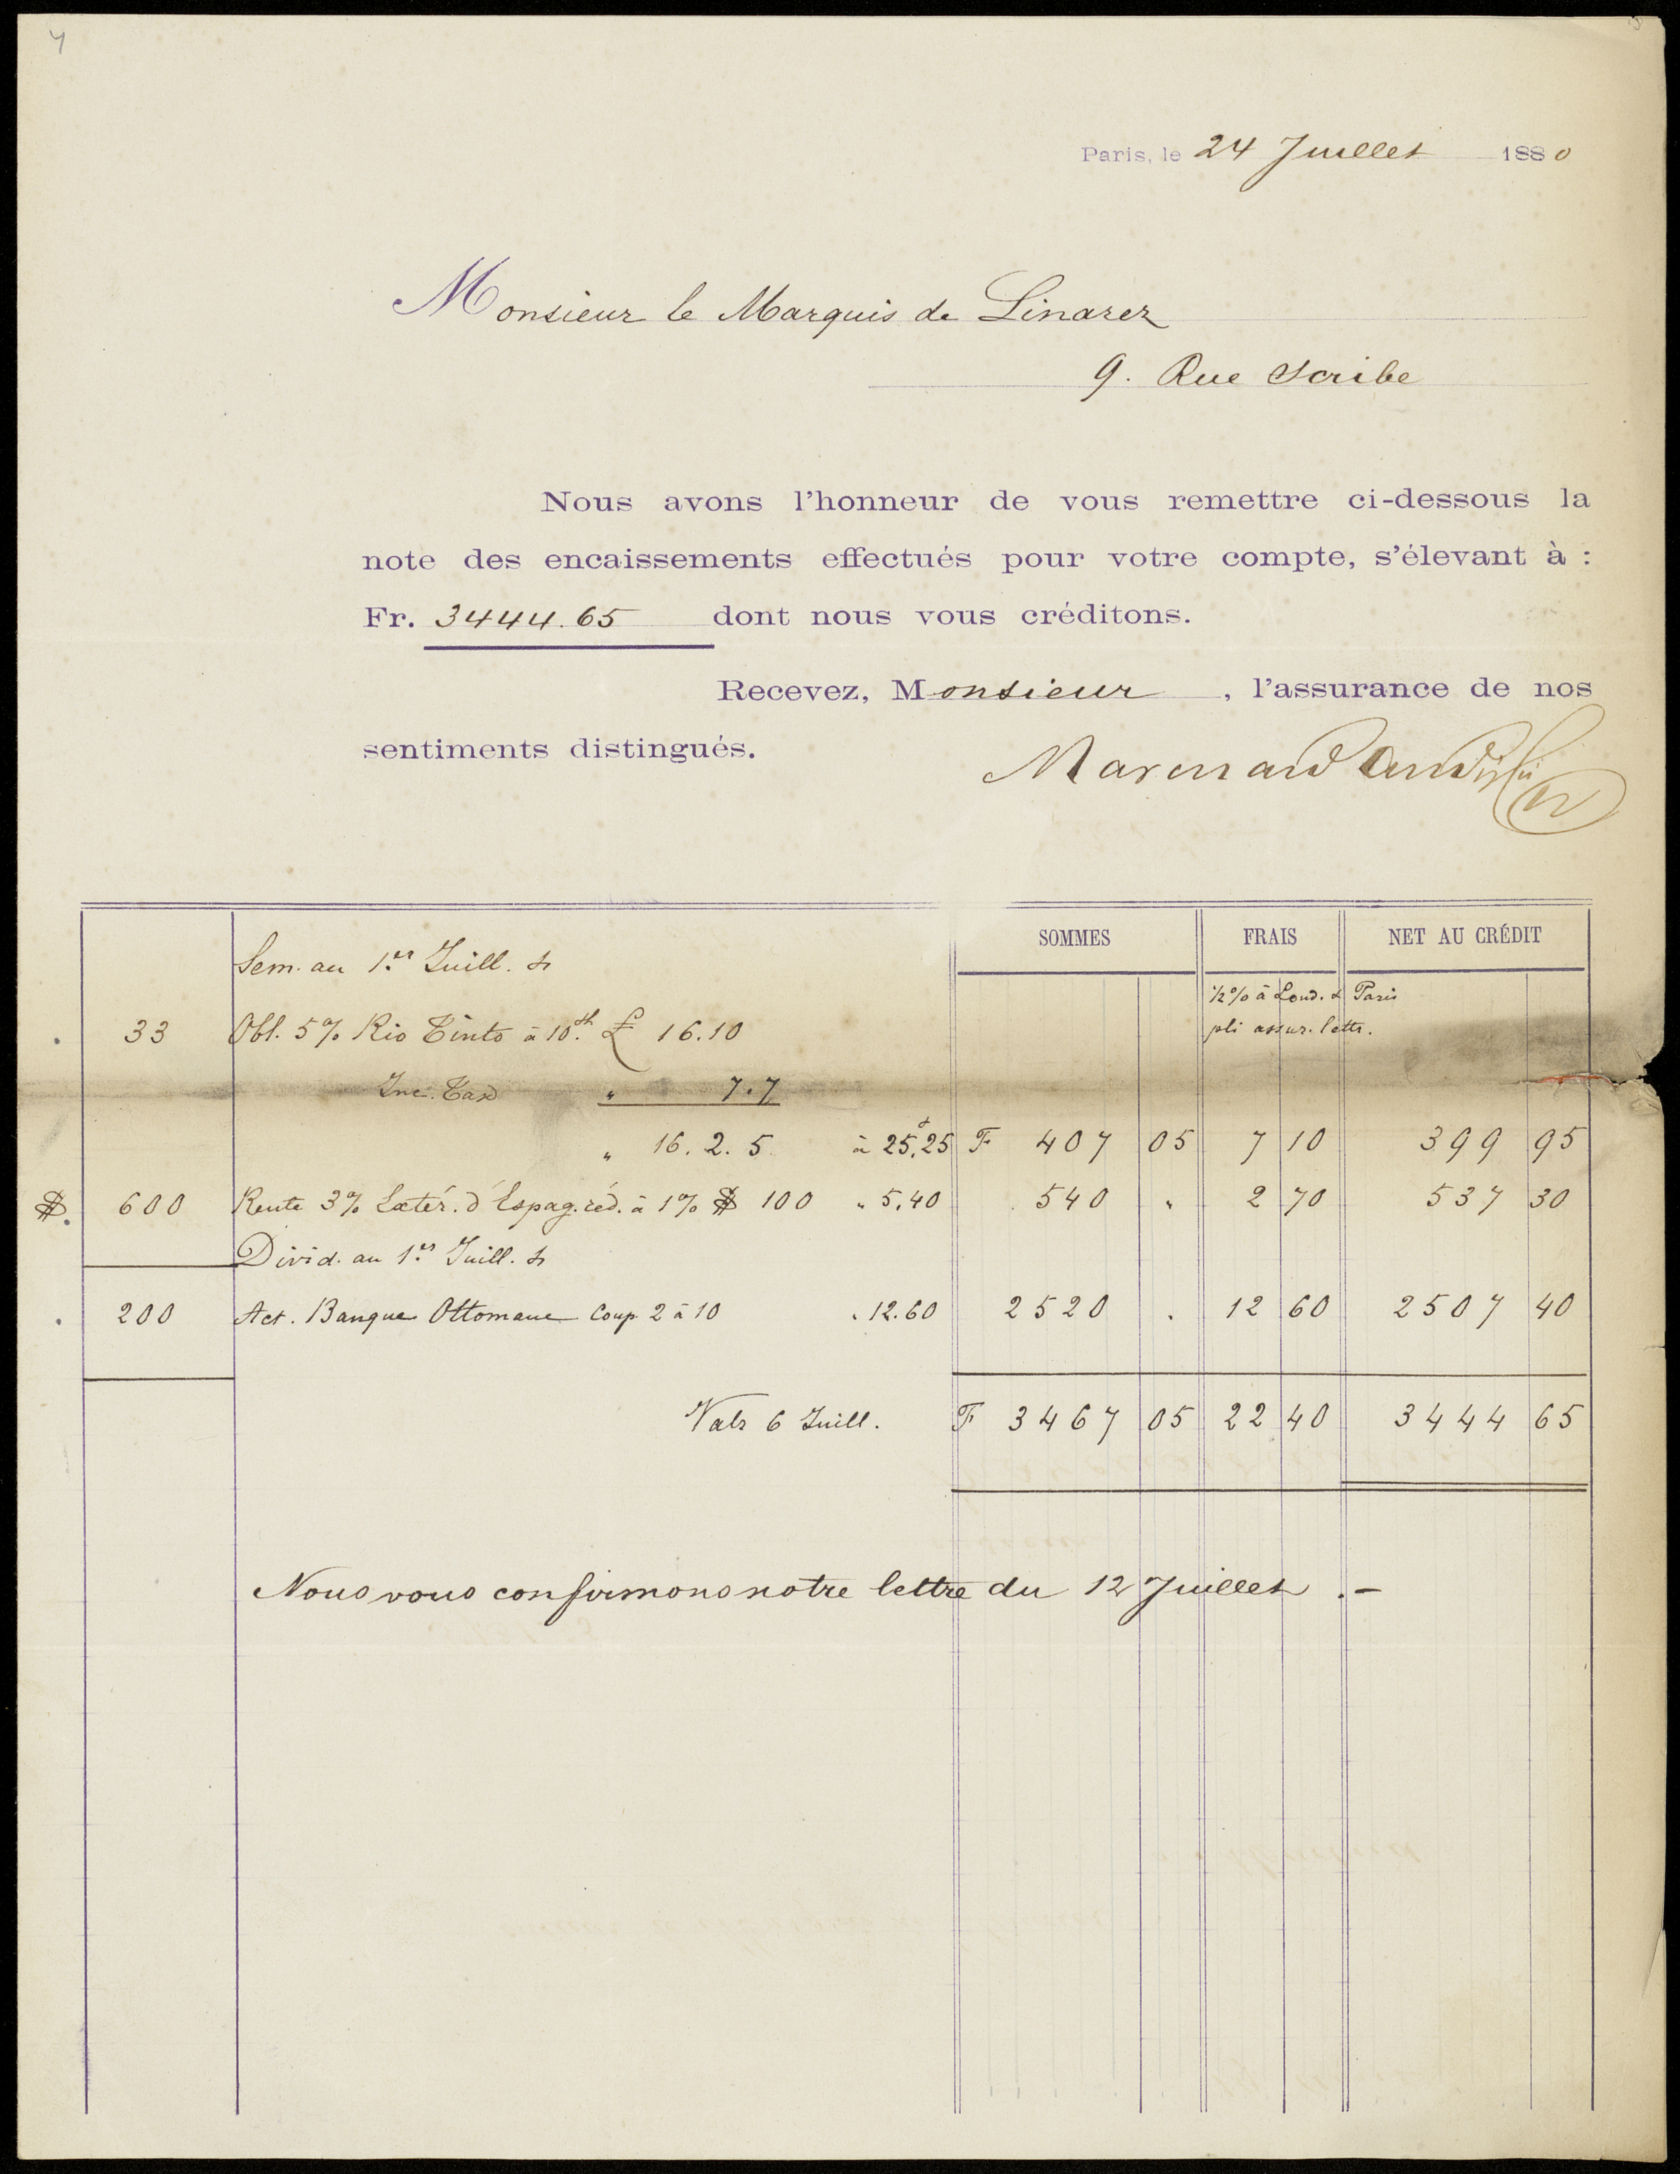 Paris, le 24 Juillet 1880
Monsieur le Marquis de Linarez
9. Rue Scribe
Nous avons l'honneur de vous remettre ci-dessous la
note des encaissements effectués pour votre compte, s'élevant à :
Fr. 3444.65 dont nous vous créditons.
Recevez, Monsieur, l'assurance de nos
sentiments distingués.
SOMMES FRAIS NET AU CRÉDIT
Sem. au 1.er Juill.
½% à Lond. & Paris
pli assur. lettr.
33 Obl. 5% Rio Tinto à 10.sh £ 16.10
Inc. Tax " 7.7
" 16. 2. 5 à 25.25 F 407 05 7 10 399 95
$ 600 Rente 3% Extér. d'Espag. réd. à 1% $ 100 " 5.40 540 " 2 70 537 30
Divid. au 1.er Juill.
200 Act. Banque Ottomane Coup 2 à 10 " 12.60 2520 . 12 60 2507 40
Valr 6 Juill. F 3467 05 22 40 3444 65
Nous vous confirmons notre lettre du 12 Juillet .-